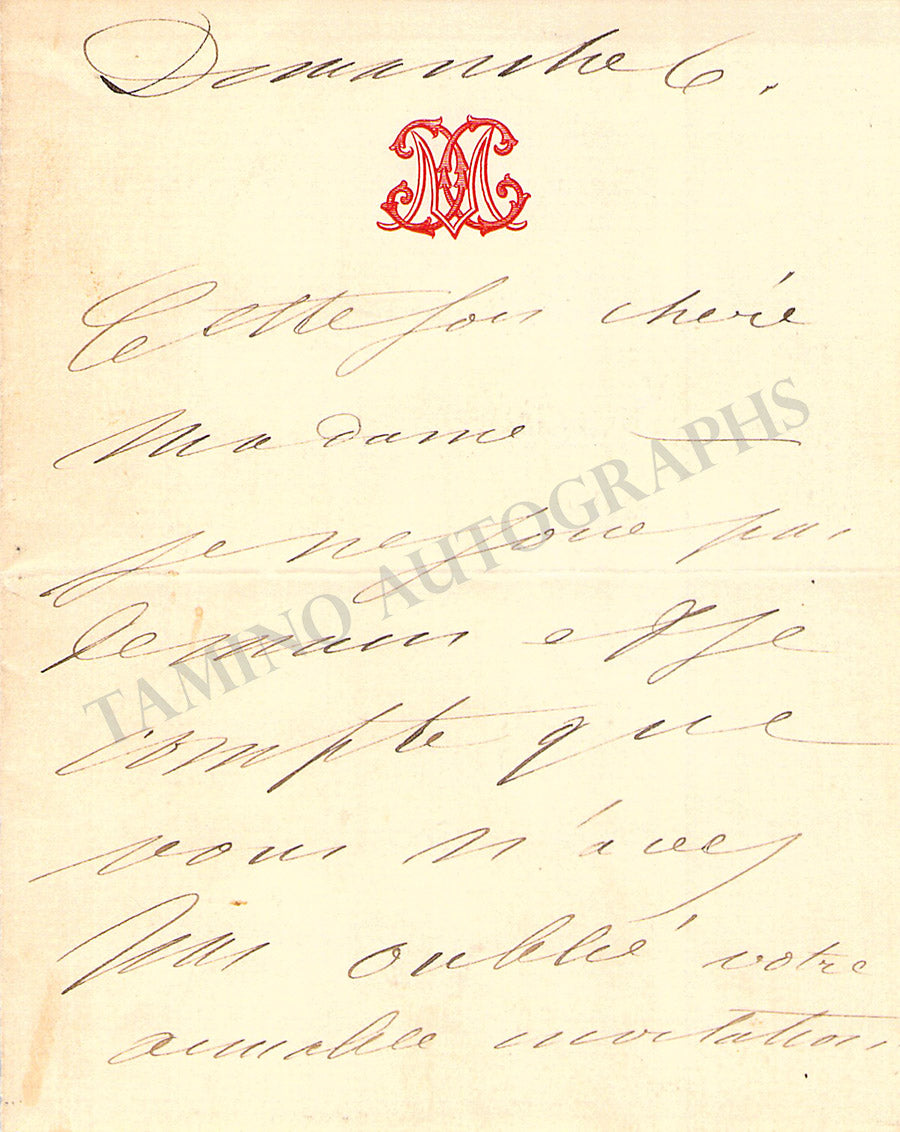 Dimanche 6.
Cette fois chère
Madame —
je ne joue pas
demain et je
compte que
vous n'avez
pas oublié votre
aimable invitation.
TAMINO AUTOGRAPHS